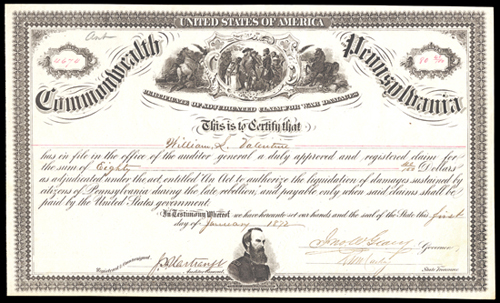 UNITED STATES OF AMERICA
Commonwealth Pennsylvania
CERTIFICATE OF ADJUDICATED CLAIM FOR WAR DAMAGES
This is to Certify that
William L. Valentine
has in file in the office of the auditor general a duly approved and registered claim for
the sum of Eighty Dollars
as adjudicated under the act entitled "An Act to authorize the liquidation of damages sustained by
citizens of Pennsylvania during the late rebellion," and payable only when said claims shall be
paid by the United States government.
In Testimony Whereof, we have hereunto set our hands and the seal of the State this first
day of January 1872
Jno W Geary Governor
J F Hartranft
Auditor General
State Treasurer